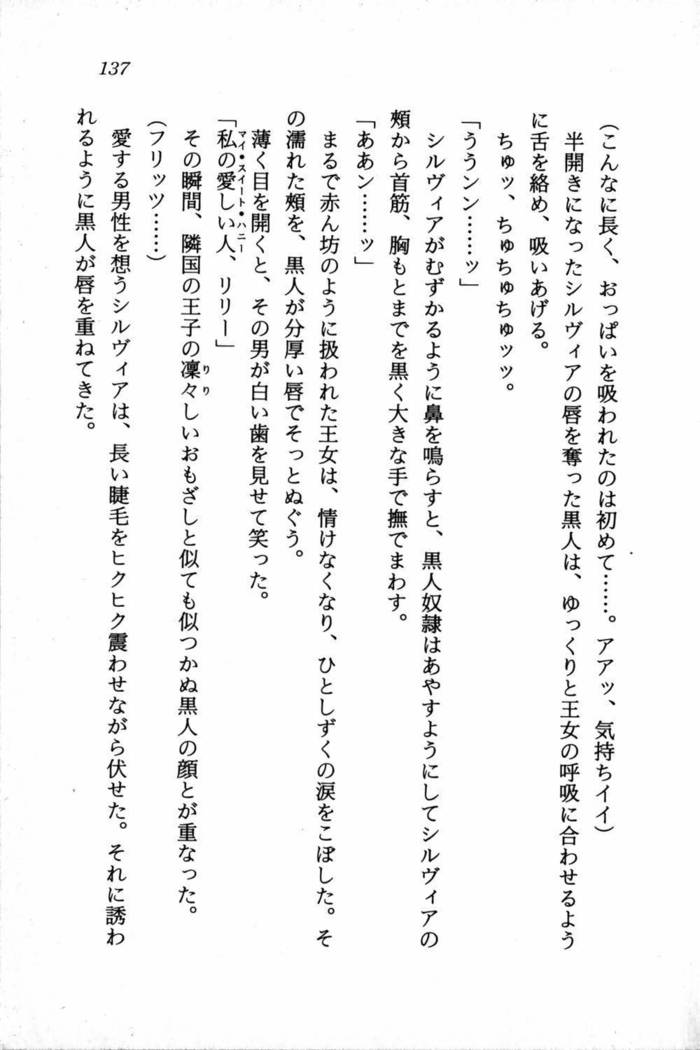 137
(こんなに長く、おっぱいを吸われたのは初めて……。アアッ、気持ちイイ)
半開きになったシルヴィアの唇を奪った黒人は、ゆっくりと王女の呼吸に合わせるよう
に舌を絡め、吸いあげる。
ちゅッ、ちゅちゅちゅッッ。
「ううンン……ッ」
シルヴィアがむずかるように鼻を鳴らすと、黒人奴隷はあやすようにしてシルヴィアの
頰から首筋、胸もとまでを黒く大きな手で撫でまわす。
「ああン……ッ」
まるで赤ん坊のように扱われた王女は、情けなくなり、ひとしずくの涙をこぼした。そ
の濡れた頰を、黒人が分厚い唇でそっとぬぐう。
薄く目を開くと、その男が白い歯を見せて笑った。
「私の愛しい人、リリー」
マイ・スイート・ハニー
その瞬間、隣国の王子の凜々しいおもざしと似ても似つかぬ黒人の顔とが重なった。
りり
(フリッツ……)
愛する男性を想うシルヴィアは、長い睫毛をヒクヒク震わせながら伏せた。それに誘わ
れるように黒人が唇を重ねてきた。